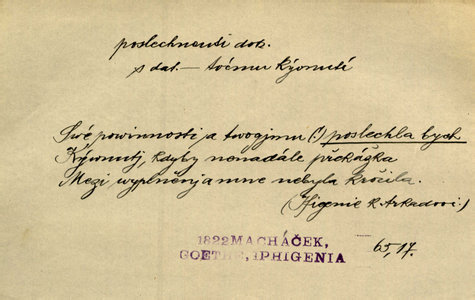 poslechnouti dok.
s dat. — tvému kývnutí
Swé powinnosti a twogjmu (!) poslechla bych
Kýwnutj, kdyby nenadále překážka
Mezi wyplněnj a mne nebyla kročila.
(Ifigenie k Arkadovi.)
1822 MACHÁČEK,
GOETHE, IPHIGENIA
65, 17.